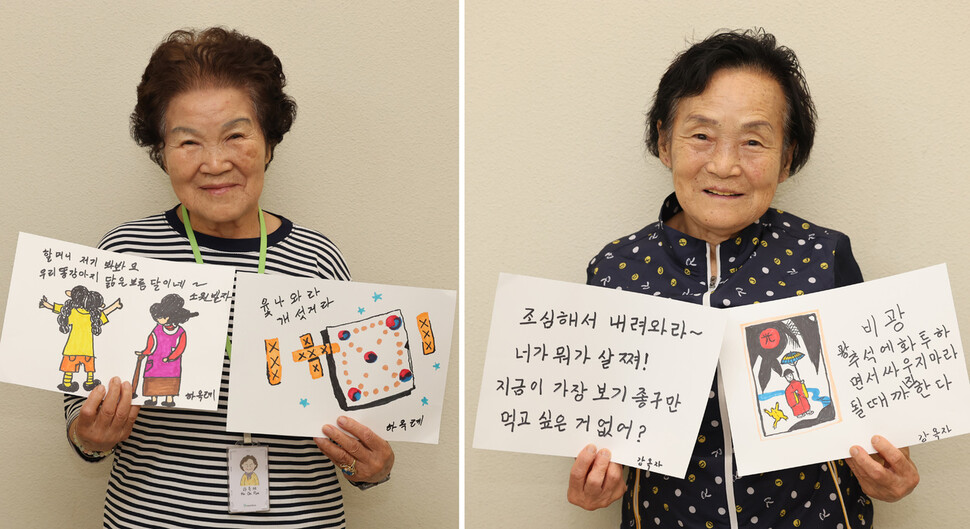 할머니 저기 봐봐요
우리똥강아지 닮은보름달이네~
소원빌자
하육례
윷나와라
개섯거라
하육례
조심해서 내려와라~
너가뭐가 살쪄!
지금이 가장 보기 좋구만
먹고 싶은 거 없어?
감옥자
비광
추석에화투하
면서 싸우지마라
될때까정한다
감옥자